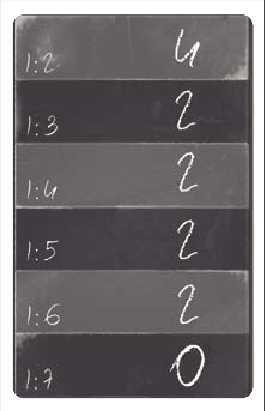 1:2 4
1:3 2
1:4 2
1:5 2
1:6 2
1:7 0